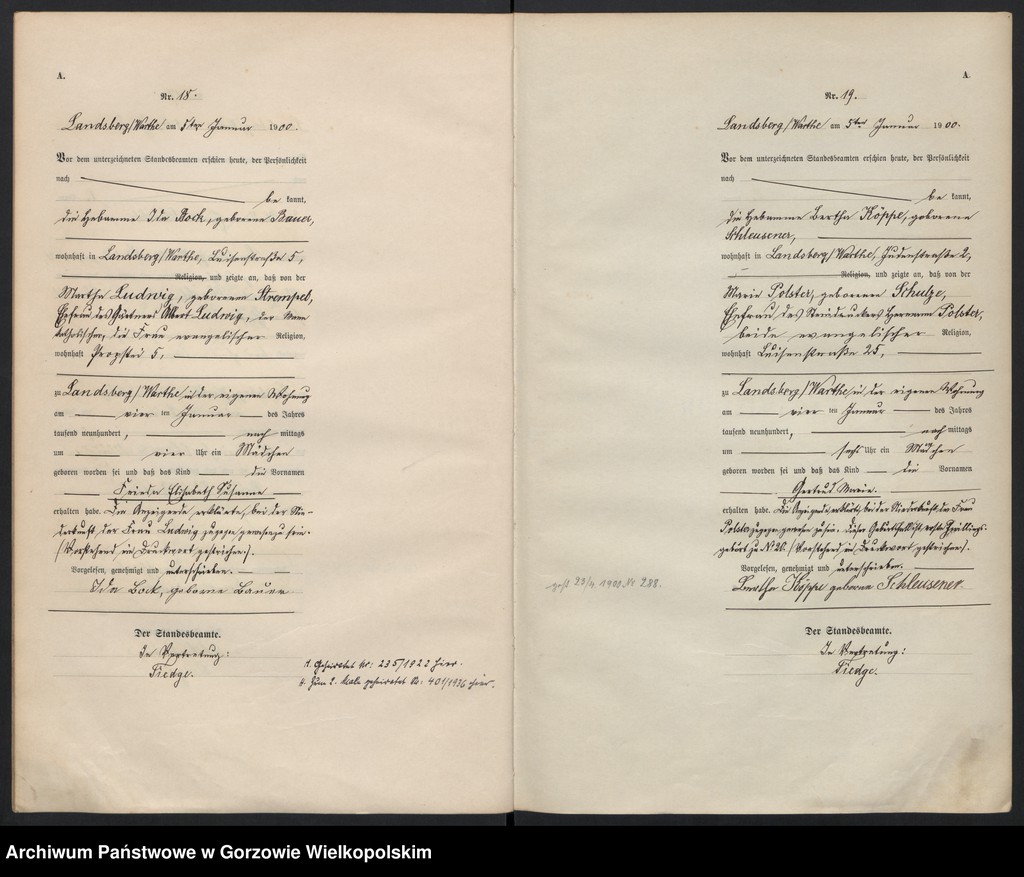 A.
Nr. 18.
Landsberg/Warthe am 5ten Januar 1900.
Vor dem unterzeichneten Standesbeamten erschien heute, der Persönlichkeit
nach
be kannt,
die Hebamme Ida Bock, geborene Bauer,
wohnhaft in Landsberg/Warthe, Luisenstraße 5,
Religion, und zeigte an, daß von der
Martha Ludwig, geborenen Strempel,
Ehefrau des Gärtners Albert Ludwig, der Mann
katholischer, die Frau evangelischer Religion,
wohnhaft Propstei 5,
zu Landsberg/Warthe in der eigenen Wohnung
am vier ten Januar des Jahres
tausend neunhundert, nach mittags
um vier Uhr ein Mädchen
geboren worden sei und daß das Kind die Vornamen
Frieda Elisabeth Susanne
erhalten habe. Die Anzeigende erklärte, bei der Nie-
derkunft der Frau Ludwig zugegen gewesen zu sein.
(Vorstehend ein Druckwort gestrichen).
Vorgelesen, genehmigt und unterschrieben.
Ida Bock, geborne Bauer
Der Standesbeamte.
In Vertretung:
Tiedge.
1. Geheiratet Nr: 235/1922 hier.
Zum 2. Male geheiratet No: 401/1936 hier.
A
Nr. 19.
Landsberg/Warthe am 5ten Januar 1900.
Vor dem unterzeichneten Standesbeamten erschien heute, der Persönlichkeit
nach
be kannt,
die Hebamme Bertha Köppe, geborene
Schleusener,
wohnhaft in Landsberg/Warthe, Judenstraße 2,
Religion, und zeigte an, daß von der
Marie Polster, geborenen Schulze,
Ehefrau des Steindruckers Hermann Polster,
beide evangelischer Religion,
wohnhaft Luisenstraße 25,
zu Landsberg/Warthe in der eigenen Wohnung
am vier ten Januar des Jahres
tausend neunhundert, nach mittags
um sechs Uhr ein Mädchen
geboren worden sei und daß das Kind die Vornamen
Gertrud Marie.
erhalten habe. Die Anzeigende erklärte, bei der Niederkunft der Frau
Polster zugegen gewesen zu sein. Dieser Geburtsfall ist erste Zwillings-
geburt zu No 20. (Vorstehend ein Druckwort gestrichen).
Vorgelesen, genehmigt und unterschrieben.
Bertha Köppe geborene Schleusener.
gest 23/4. 1900 Nr 288.
Der Standesbeamte.
In Vertretung:
Tiedge.
Archiwum Państwowe w Gorzowie Wielkopolskim